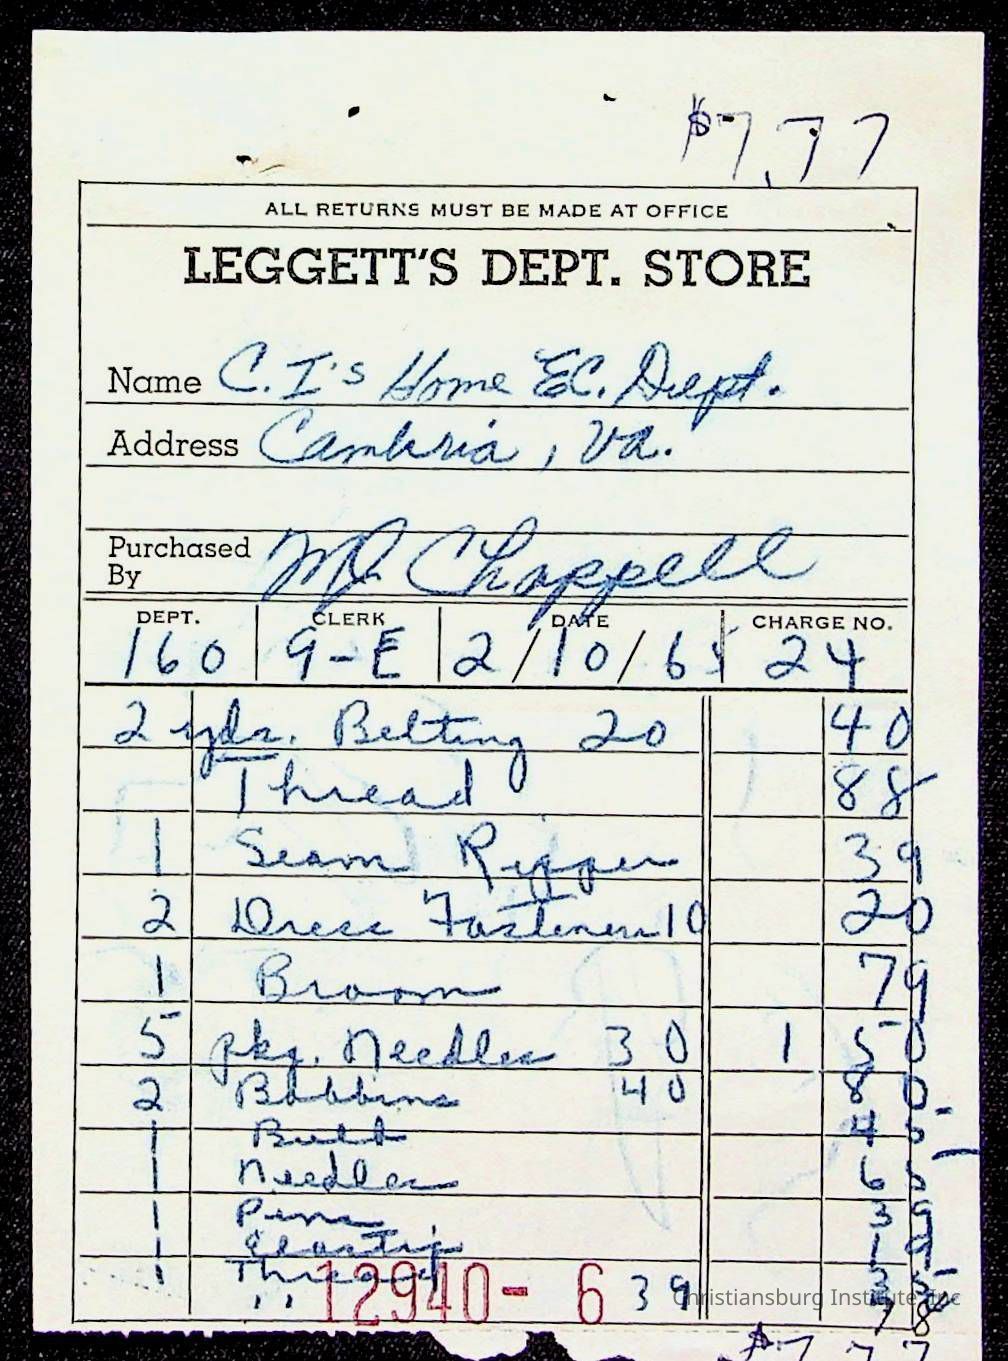 $7.77
ALL RETURNS MUST BE MADE AT OFFICE
LEGGETT'S DEPT. STORE
Name C. I's Home EC. Dept.
Address Cambria, Va.
Purchased By MJ Chappell
DEPT. CLERK DATE CHARGE NO.
160 9-E 2/10/65 24
2 yds. Belting 20 40
Thread 88
1 Seam Ripper 39
2 Dress Fasteners 10 20
1 Broom 79
5 pkg. Needles 30 1 50
2 Bobbins 40 80
1 45
1 Needles 65
1 Pins 39
1 19
1 Thread 35
,, 39 78
12940- 6
Christiansburg Institute, Inc
$7.77